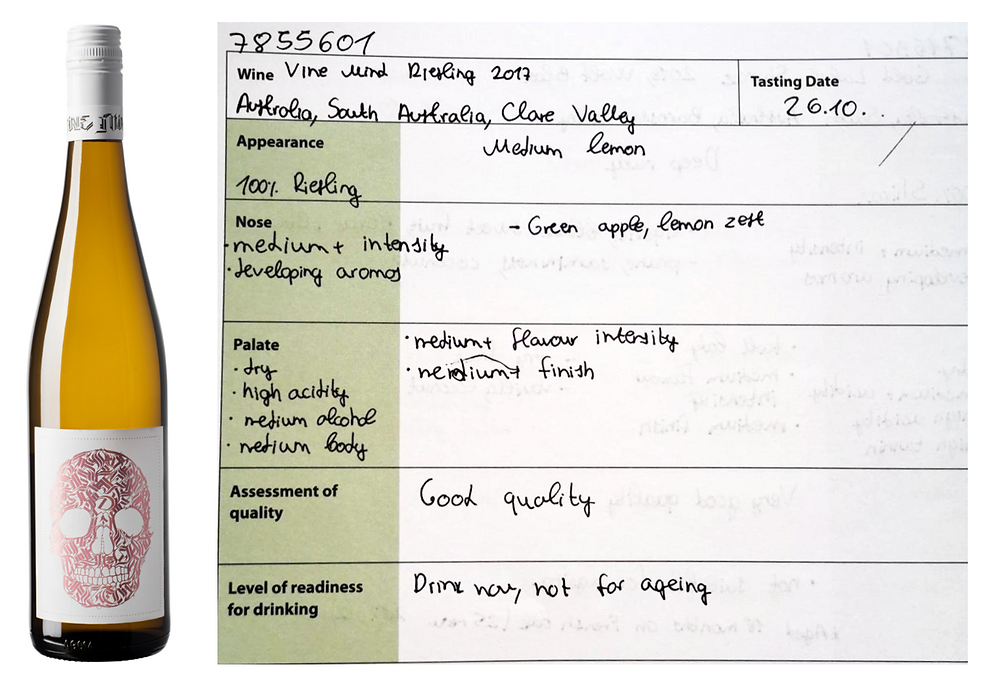 7855601
Wine Vine Mind Riesling 2017
Australia, South Australia, Clare Valley
Tasting Date
26.10.
Appearance
Medium lemon
100% Riesling
Nose
- Green apple, lemon zest
-medium+ intensity
·developing aromas
Palate
· dry
· high acidity
· medium alcohol
· medium body
· medium+ flavour intensity
· medium+ finish
Assessment of
quality
Good quality
Level of readiness
for drinking
Drink now, not for ageing